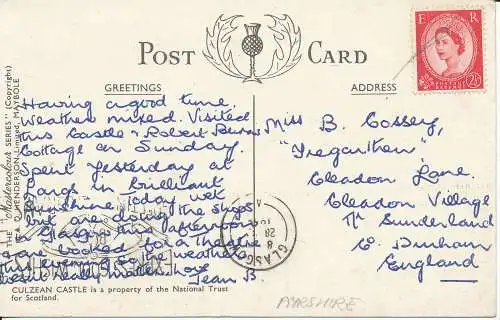 POST CARD
GREETINGS
ADDRESS
E R
POSTAGE REVENUE
2½D
THE "Mastercolour SERIES" (Copyright)
HENDERSON, Limited, MAYBOLE
Having a good time.
Weather mixed. Visited
this Castle & Robert Burns
Cottage on Sunday.
Spent yesterday at
Largs in brilliant
Sunshine. Today wet
but are doing the shops
in Glasgow this afternoon
are booked for a theatre
this evening so the weather
doesn't really matter. Love
Jean B.
Miss B. Cossey,
"Tregarthen"
Cleadon Lane,
Cleadon Village
Nr Sunderland
Co. Durham
England
GLASGOW
8
28
CULZEAN CASTLE is a property of the National Trust
for Scotland.
AYRSHIRE